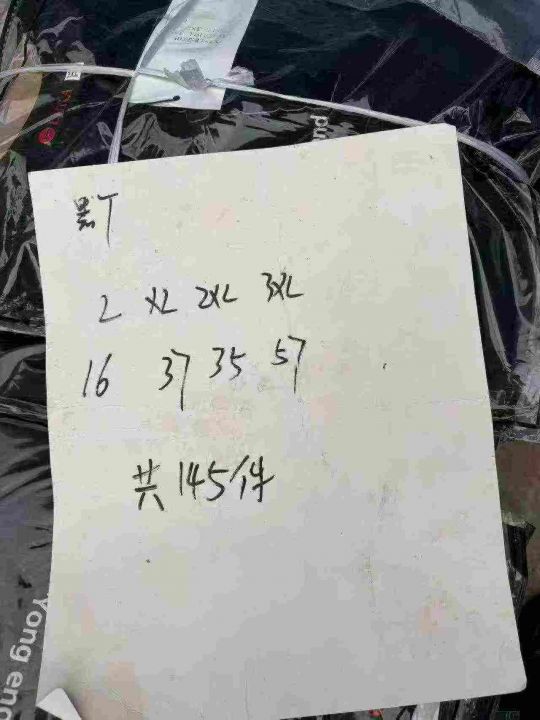 黑T
L XL 2XL 3XL
16 37 35 57
共145件
Yong eno
pu